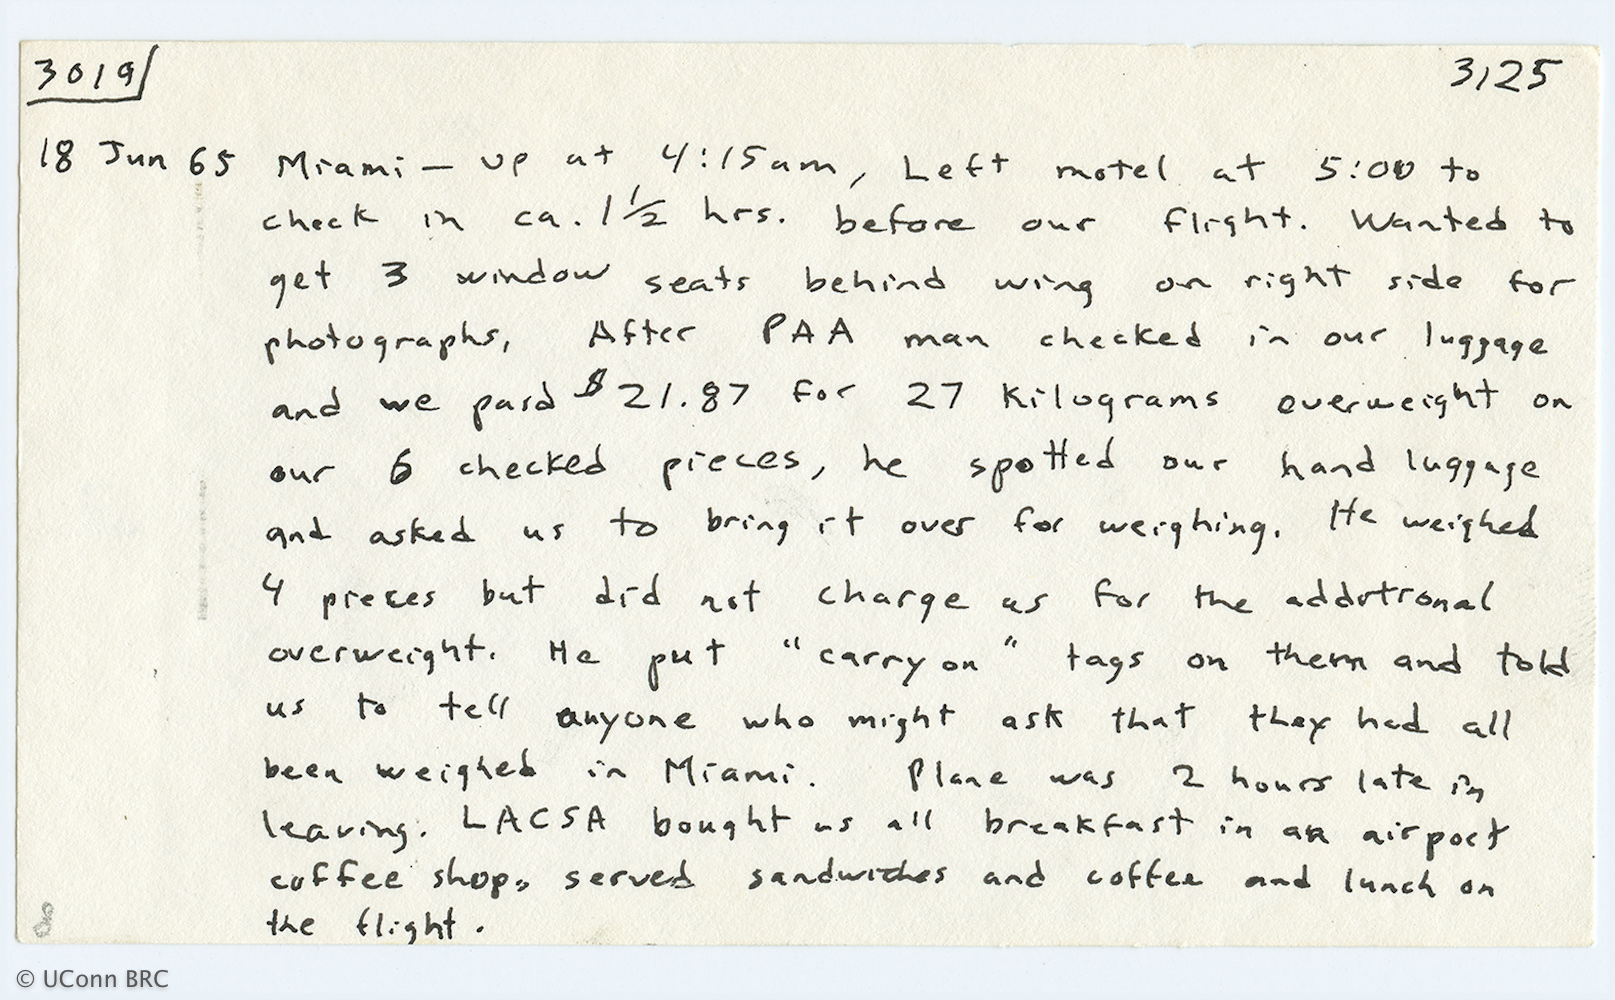 3019 3125
18 Jun 65 Miami — up at 4:15am, Left motel at 5:00 to
check in ca. 1 1/2 hrs. before our flight. Wanted to
get 3 window seats behind wing on right side for
photographs, After PAA man checked in our luggage
and we paid $21.87 for 27 Kilograms overweight on
our 6 checked pieces, he spotted our hand luggage
and asked us to bring it over for weighing. He weighed
4 pieces but did not charge us for the additional
overweight. He put "carry on" tags on them and told
us to tell anyone who might ask that they had all
been weighed in Miami. Plane was 2 hours late in
leaving. LACSA bought us all breakfast in an airport
coffee shop, served sandwiches and coffee and lunch on
the flight.
8
© UConn BRC